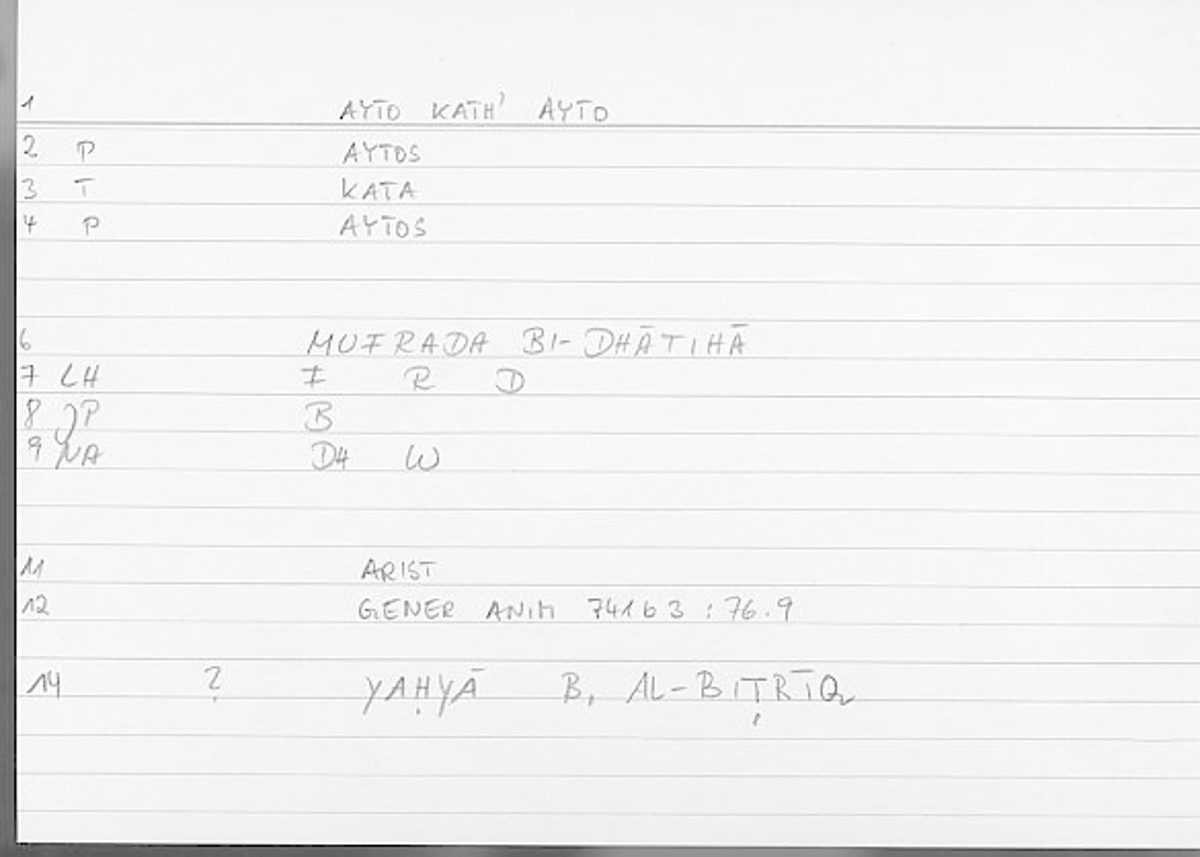 1 AYTO KATH' AYTO
2 P AYTOS
3 T KATA
4 P AYTOS
6 MUFRADA BI-DHĀTIHĀ
7 LH F R D
8 JP B
9 NA DH W
11 ARIST
12 GENER ANIM 741b3 : 76.9
14 ? YAḤYĀ B. AL-BIṬRĪQ